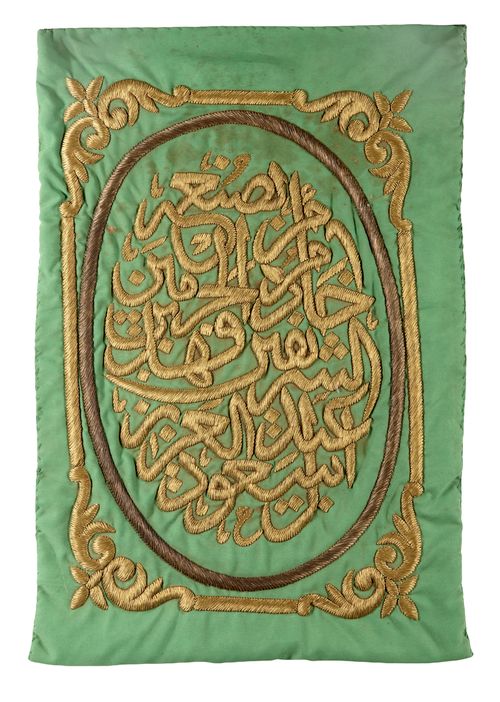 أمر بصنعه
خادم الحرمين
الشريفين فهد بن
عبد العزيز
آل سعود